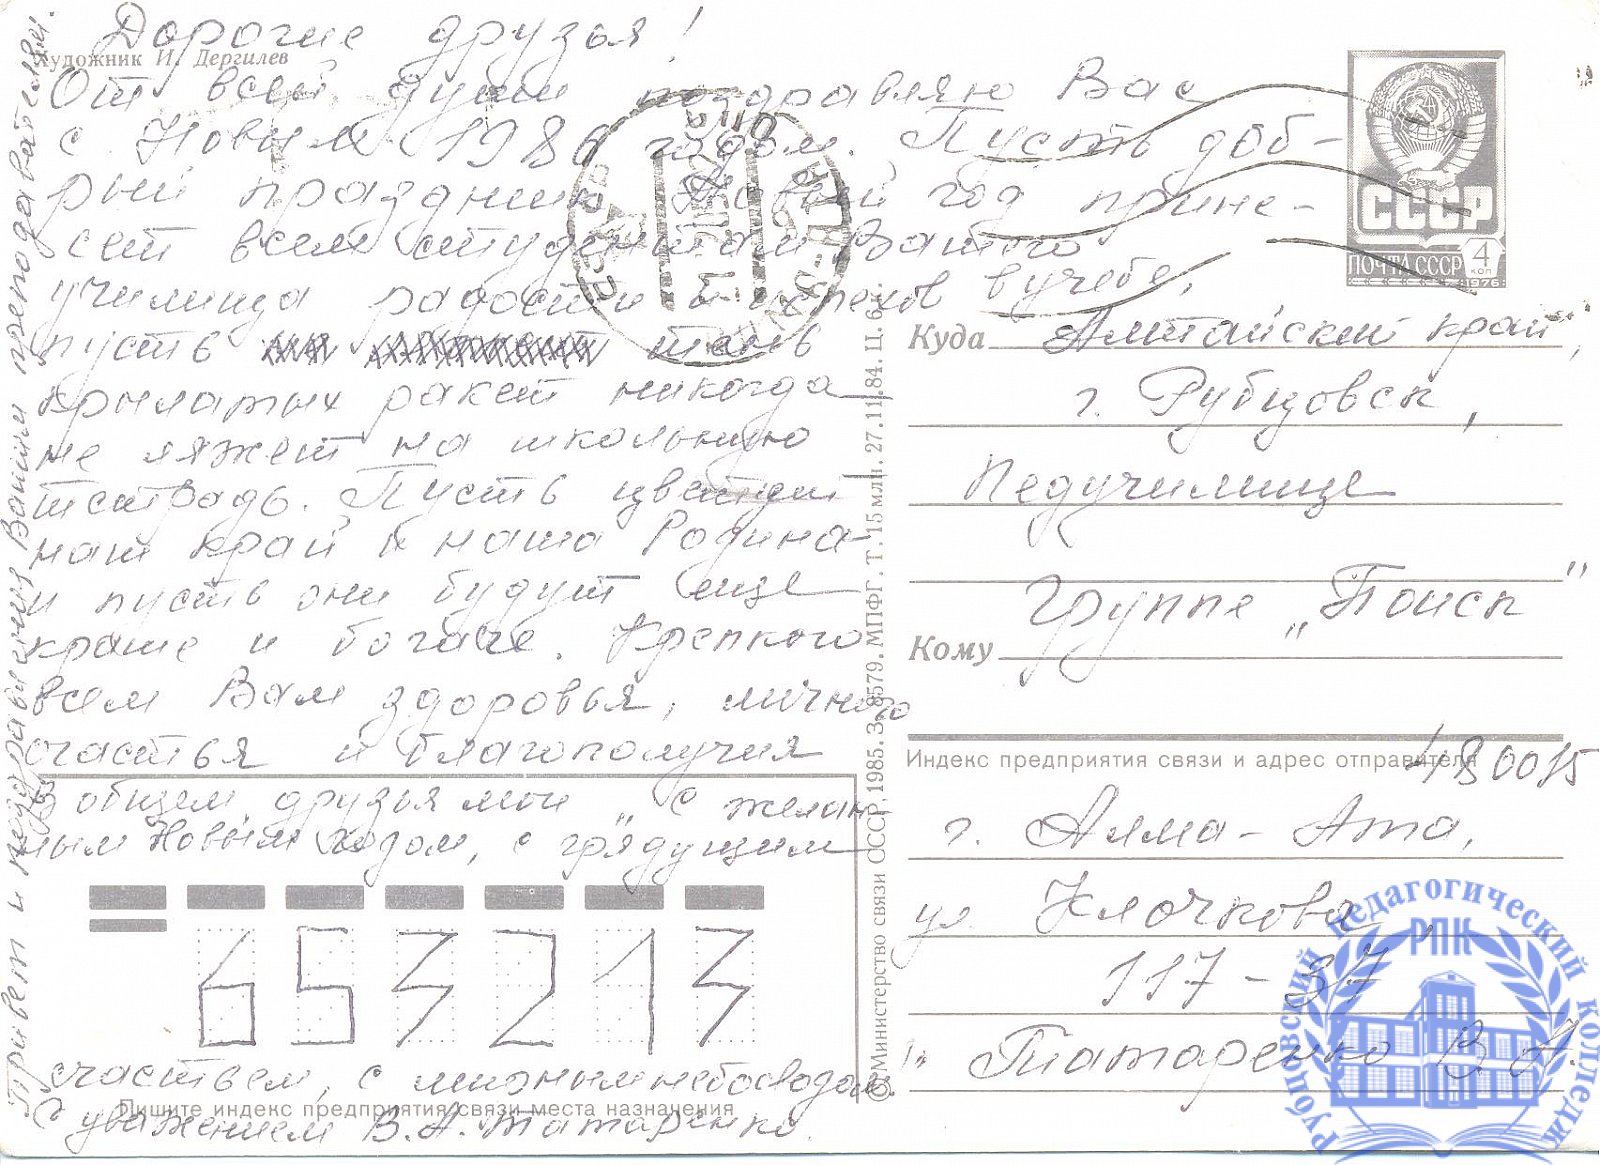 Дорогие друзья!
Художник И. Дергилев
От всей души поздравляю Вас
с Новым 1986 годом. Пусть доб-
рый праздник Новый год прине-
сет всем студентам Вашего
училища радости и успехов в учебе,
пусть тень
крылатых ракет никогда
не ляжет на школьную
тетрадь. Пусть цветет
наш край и наша Родина-
и пусть они будут еще
краше и богаче. Крепкого
всем Вам здоровья, личного
счастья и благополучия
В общем друзья мои, с желан-
ным Новым годом, с грядущим
653213
счастьем, с мирным небосводом!
Пишите индекс предприятия связи места назначения
С уважением В. А. Татаренко.
Привет и поздравления Вашим преподавателям.
© Министерство связи СССР. 1985. З. 8579. МПФГ. Т. 15 млн. 27.11.84. Ц. 6 к.
СССР
ПОЧТА СССР 4 коп
1976
Куда Алтайский край,
г. Рубцовск,
Педучилище
Группе „Поиск"
Кому
Индекс предприятия связи и адрес отправителя
480015
г. Алма-Ата,
ул. Клочкова,
117-37
Татаренко В. А.
Рубцовский педагогический колледж
РПК